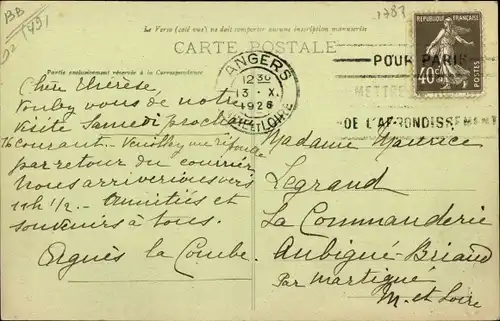 BB
(49)
1783
Le Verso (côté vue) ne doit comporter aucune inscription manuscrite
CARTE POSTALE
Partie exclusivement réservée à la Correspondance
ANGERS
12 30
13 - X.
1926
RÉPUBLIQUE FRANÇAISE
40c
POSTES
POUR PARIS
METTRE
DE L'ARRONDISSEMENT
Chère Thérèse,
vous de notre
visite Samedi prochain
16 courant. Veuillez une réponse
par retour du courrier
Nous arriverions vers
11h 1/2. Amitiés et
souvenirs à tous.
Agnès la Combe
Madame Maurice
Legrand
La Commanderie
Aubigné-Briand
Par Martigné
M. et Loire